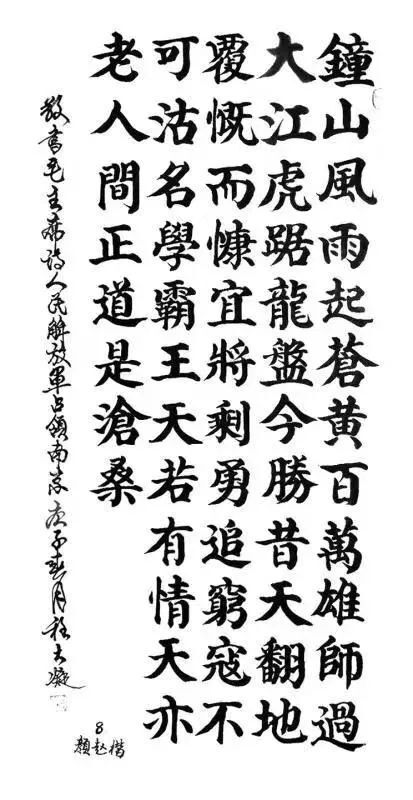 鐘山風雨起蒼黄百萬雄師過
大江虎踞龍盤今勝昔天翻地
覆慨而慷宜將剩勇追窮寇不
可沽名學霸王天若有情天亦
老人間正道是滄桑
敬書毛主席詩人民解放軍占領南京庚子春月程大凝
8
顏赵楷